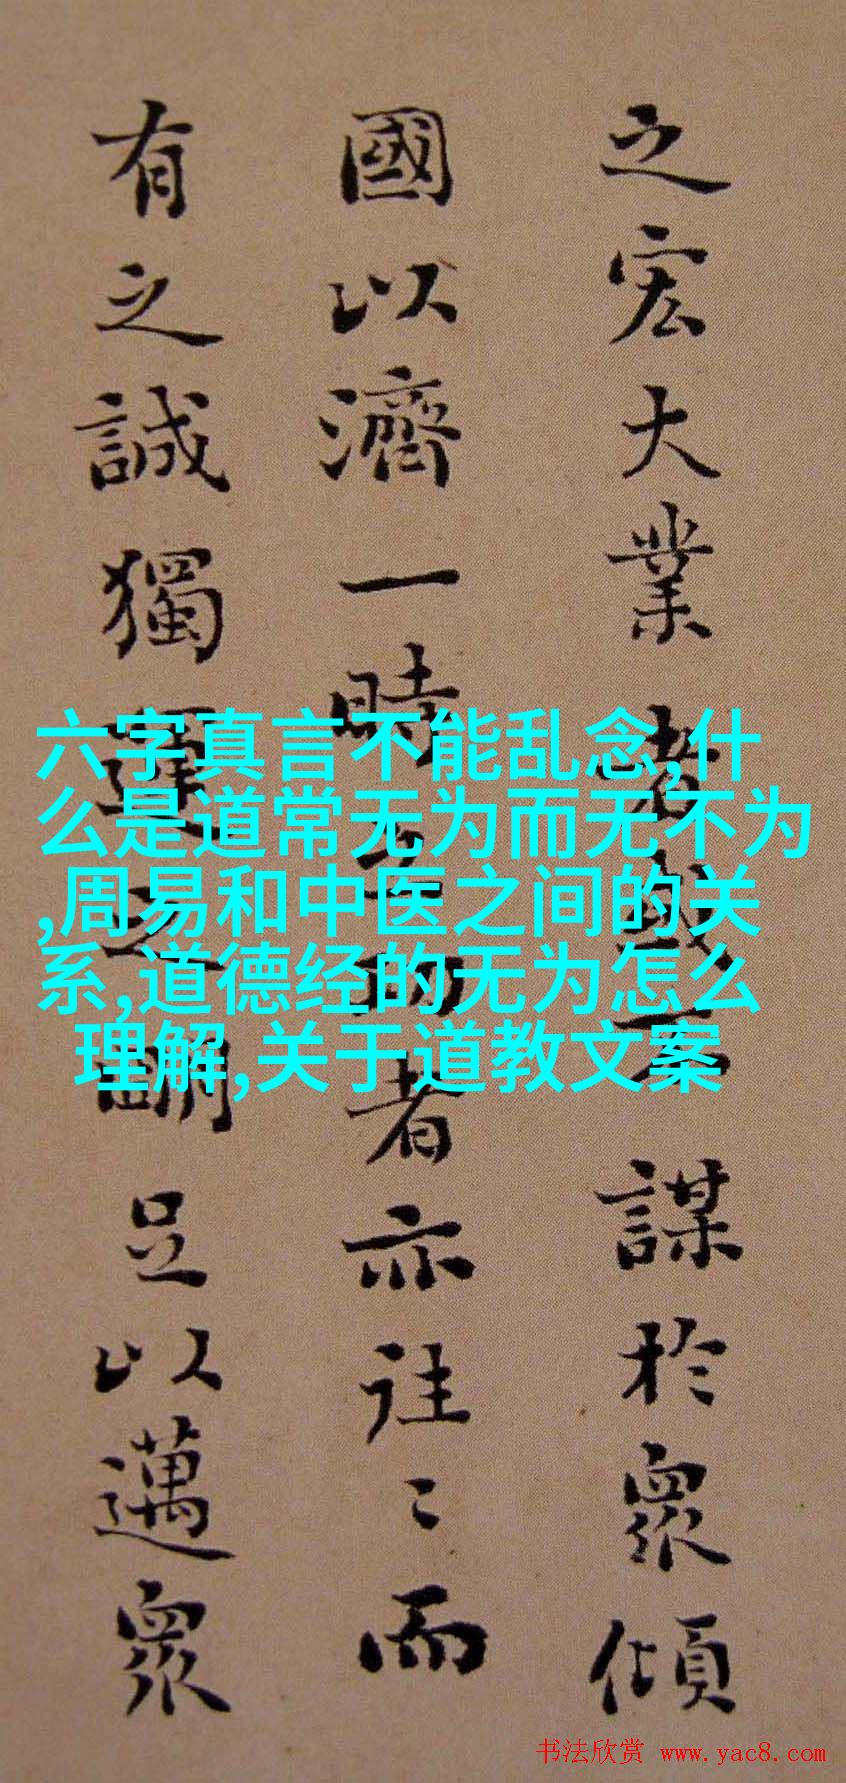 之宏大業者或不謀於衆傾
國以濟一時之功者亦往〻而
有之誠獨運之明足以邁衆
六字真言不能乱念,什
么是道常无为而无不为
,周易和中医之间的关
系,道德经的无为怎么
理解,关于道教文案
书法欣赏 www.yac8.com